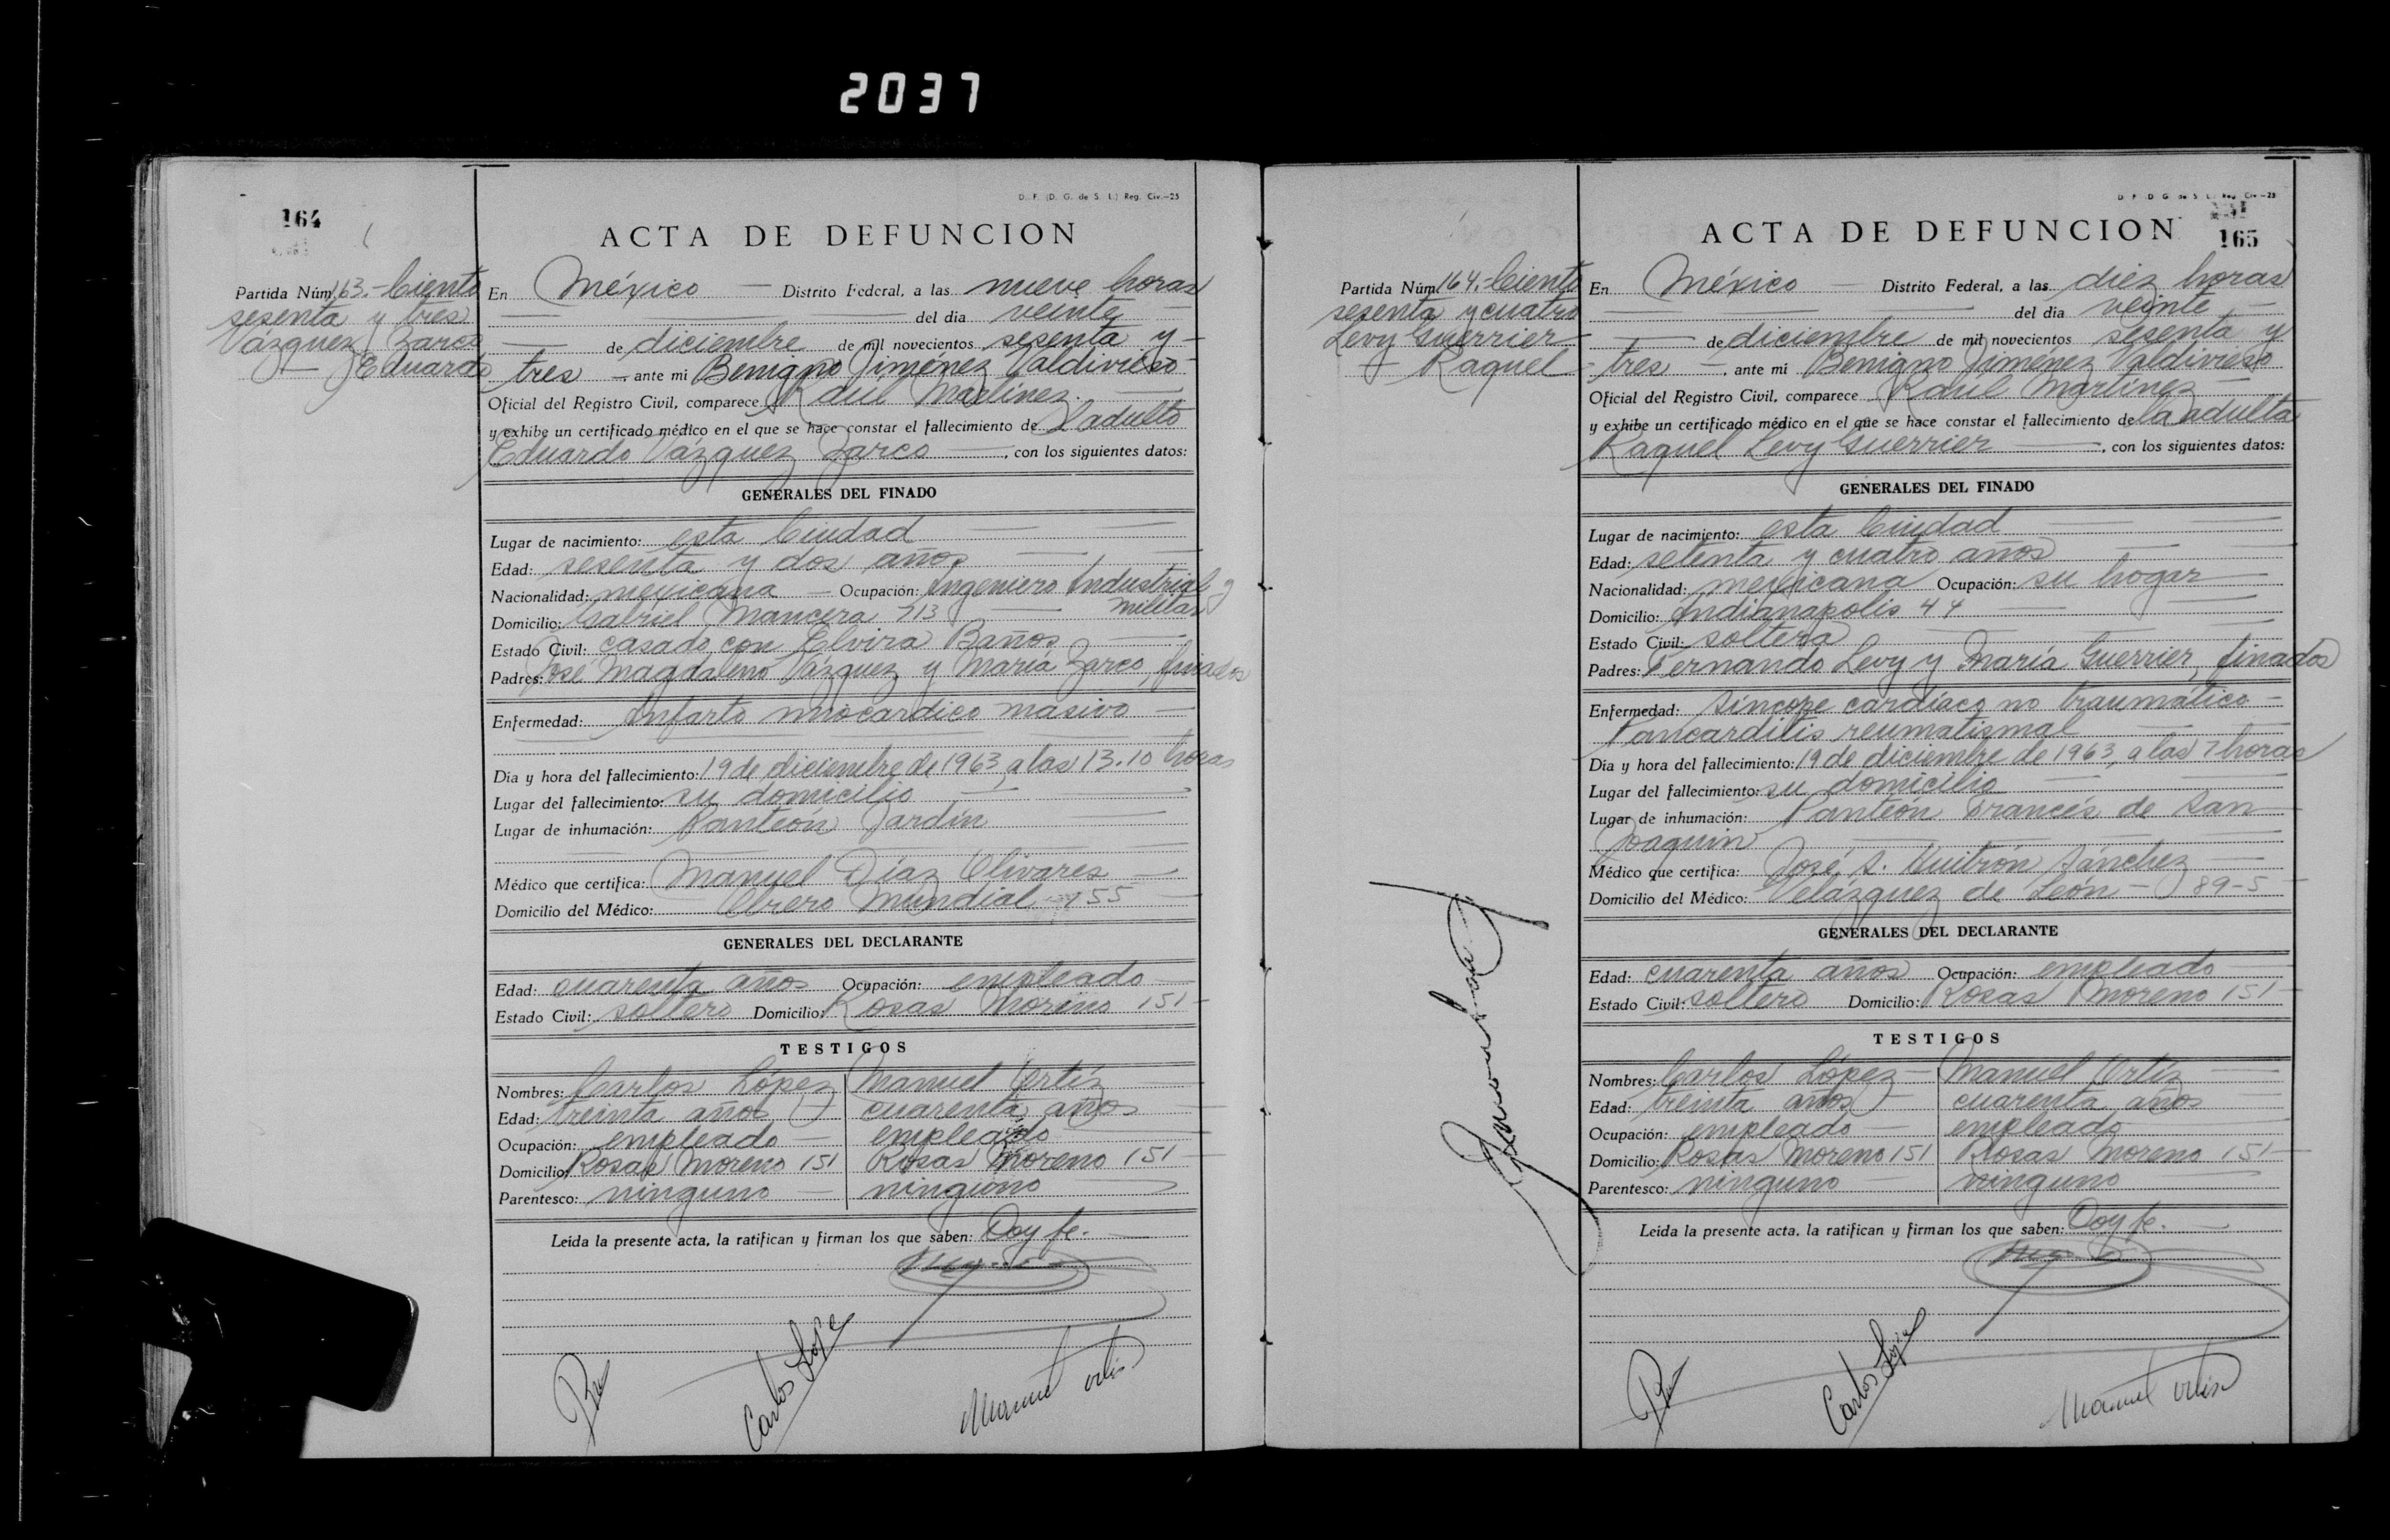 2037
164
D. F. (D. G. de S. L.) Reg. Civ.—25
ACTA DE DEFUNCION
Partida Núm. 163.- Ciento
sesenta y tres
Vázquez Zarco
Eduardo
En México Distrito Federal, a las nueve horas
del dia veinte
de diciembre de mil novecientos sesenta y
tres, ante mi Benigno Jiménez Valdivieso
Oficial del Registro Civil, comparece Raúl Martínez.
y exhibe un certificado médico en el que se hace constar el fallecimiento del adulto
Eduardo Vázquez Zarco, con los siguientes datos:
GENERALES DEL FINADO
Lugar de nacimiento: esta Ciudad
Edad: sesenta y dos años
Nacionalidad: mexicana Ocupación: Ingeniero Industrial y
militar
Domicilio: Gabriel Mancera 713
Estado Civil: casado con Elvira Baños
Padres: José Magdaleno Vázquez y María Zarco, finados
Enfermedad: Infarto miocardico masivo
Dia y hora del fallecimiento: 19 de diciembre de 1963, a las 13.10 horas
Lugar del fallecimiento: su domicilio
Lugar de inhumación: Panteón Jardín
Médico que certifica: Manuel Díaz Olivares
Domicilio del Médico: Obrero Mundial 155
GENERALES DEL DECLARANTE
Edad: cuarenta años Ocupación: empleado
Estado Civil: soltero Domicilio: Rosas Moreno 151
TESTIGOS
Nombres: Carlos López Manuel Ortíz
Edad: treinta años cuarenta años
Ocupación: empleado empleado
Domicilio: Rosas Moreno 151 Rosas Moreno 151
Parentesco: ninguno ninguno
Leida la presente acta, la ratifican y firman los que saben: Doy fe.
Carlos López
Manuel Ortiz
D. F. (D. G. de S. L.) Reg. Civ.—25
ACTA DE DEFUNCION
165
Partida Núm. 164.- Ciento
sesenta y cuatro
Levy Guerrier
Raquel
En México Distrito Federal, a las diez horas
del dia veinte
de diciembre de mil novecientos sesenta y
tres, ante mi Benigno Jiménez Valdivieso
Oficial del Registro Civil, comparece Raúl Martínez
y exhibe un certificado médico en el que se hace constar el fallecimiento de la adulta
Raquel Levy Guerrier, con los siguientes datos:
GENERALES DEL FINADO
Lugar de nacimiento: esta Ciudad
Edad: setenta y cuatro años
Nacionalidad: mexicana Ocupación: su hogar
Domicilio: Indianapolis 44
Estado Civil: soltera
Padres: Fernando Levy y María Guerrier, finados
Enfermedad: Síncope cardíaco no traumático
Pancarditis reumatismal
Día y hora del fallecimiento: 19 de diciembre de 1963, a las 7 horas
Lugar del fallecimiento: su domicilio
Lugar de inhumación: Panteón Francés de San
Joaquin
Médico que certifica: José S. Huitrón Sánchez
Domicilio del Médico: Velázquez de León 89-5
GENERALES DEL DECLARANTE
Edad: cuarenta años Ocupación: empleado
Estado Civil: soltero Domicilio: Rosas Moreno 151
TESTIGOS
Nombres: Carlos López Manuel Ortíz
Edad: treinta años cuarenta años
Ocupación: empleado empleado
Domicilio: Rosas Moreno 151 Rosas Moreno 151
Parentesco: ninguno ninguno
Leida la presente acta, la ratifican y firman los que saben: Doy fe.
Carlos López
Manuel Ortiz